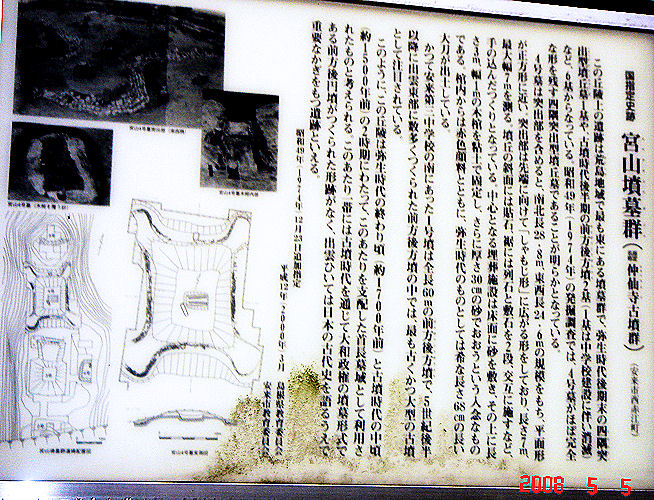 国指定史跡 宮山墳墓群（仲仙寺古墳群）（安来市西赤江町）
この丘陵上の遺跡は荒島地域で最も東にある墳墓群で、弥生時代後期末の四隅突
出型墳丘墓１基や、古墳時代後半期の前方後方墳２基（１基は中学校建設に伴い消滅）
など、６基からなっている。昭和49年（１９７４年）の発掘調査では、４号墓がほぼ完全
な形を残す四隅突出型墳丘墓であることが明らかとなっている。
４号墓は突出部を含めると、南北長28・8m東西長24・6mの規模をもち、平面形
が正方形に近い。突出部は先端に向けて「しゃもじ形」に広がる形をしており、長さ7m
最大幅7mを測る。墳丘の斜面には貼石、裾には列石と敷石を２段、交互に施すなど、
手の込んだつくりとなっている。中心となる埋葬施設は床面に砂を敷き、その上に長
さ m幅1mの木棺を粘土で固定し、さらに厚さ30cmの砂でおおうという入念なもの
である。棺内からは赤色顔料とともに、弥生時代のものとしては希な長さ68cmの長い
大刀が出土している。
かつて安来第一中学校の南にあった１号墳は全長60mの前方後方墳で、５世紀後半
以降に出雲東部に数多くつくられた前方後方墳の中では、最も古くかつ大型の古墳
として注目されている。
このように、この丘陵は弥生時代の終わり頃（約１７００年前）と古墳時代の中頃
（約１５００年前）の２時期にわたって、このあたりを支配した首長墓域として利用さ
れたものと考えられる。このあたり一帯には古墳時代を通じて大和政権の墳墓形式で
ある前方後円墳がつくられた形跡がなく、出雲ひいては日本の古代史を語るうえで
重要なかぎをもつ遺跡といえる。
昭和49年（１９７４年）12月25日追加指定
平成12年（２０００年）3月
島根県教育委員会
安来市教育委員会
宮山4号墓
宮山4号墓木棺内部
宮山墳墓群遺構配置図
宮山4号墓実測図
2008 5 5